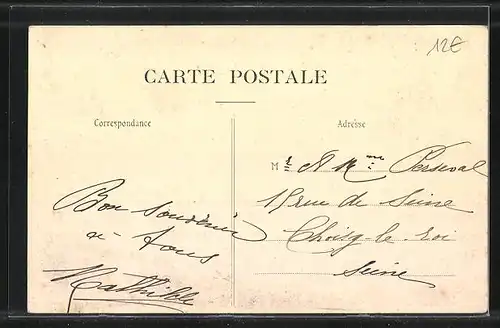 12€
CARTE POSTALE
Correspondance
Adresse
Mr et Mme Perseval
15 rue de Seine
Choisy-le-roi
Seine
Bon Souvenir
à tous
Mathilde